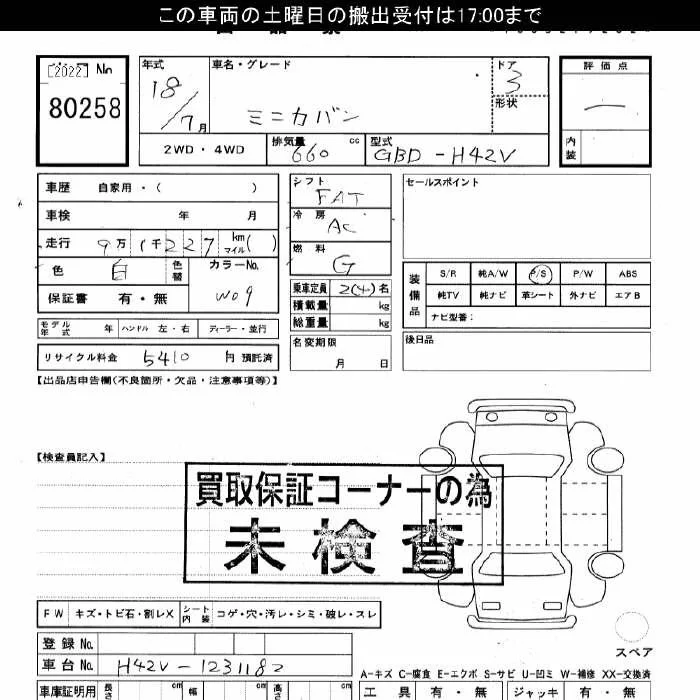 この車両の土曜日の搬出受付は17:00まで
[2022] No
80258
年式
18/7月
車名・グレード
ミニカバン
ドア
3
形状
評価点
―
内装
2WD・4WD
排気量
660 cc
型式
GBD-H42V
車歴 自家用・( )
車検 年 月
走行 9万1千227 km マイル( )
色 白 色替
カラーNo.
W09
保証書 有・無
モデル年式 年 ハンドル 左・右 ディーラー・並行
リサイクル料金 5410 円 預託済
シフト
FAT
冷房
AC
燃料
G
乗車定員 2(4)名
積載量 kg
総重量 kg
名変期限
月 日
セールスポイント
装備品
S/R 純A/W P/S P/W ABS
純TV 純ナビ 革シート 外ナビ エアB
ナビ型番：
後日品
【出品店申告欄(不良箇所・欠品・注意事項等)】
【検査員記入】
買取保証コーナーの為
未検査
FW キズ・トビ石・割レX シート内装 コゲ・穴・汚レ・シミ・破レ・スレ
登録No.
車台No. H42V-1231182
スペア
A-キズ C-腐食 E-エクボ S-サビ U-凹ミ W-補修 XX-交換済
車庫証明用 長さ cm 幅 cm 高さ cm
工具 有・無 ジャッキ 有・無